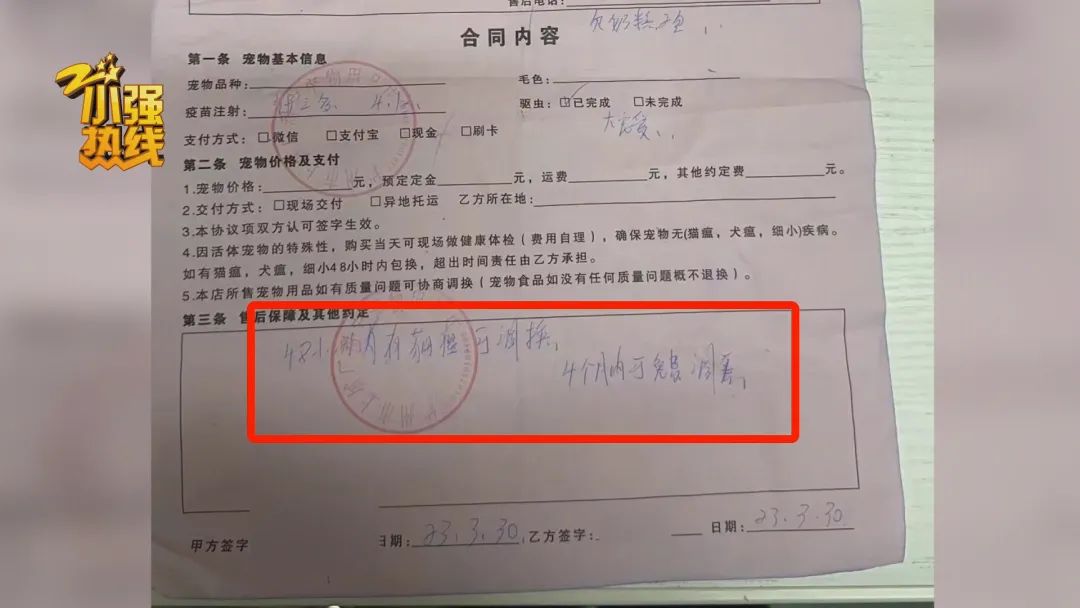 售后电话:
欠奶糕2包
合同内容
小强热线
第一条 宠物基本信息
宠物品种:
毛色:
疫苗注射: 4.1
驱虫:☑已完成 □未完成
支付方式:□微信 □支付宝 □现金 □刷卡
第二条 宠物价格及支付
1.宠物价格: 元,预定定金 元,运费 元,其他约定费 元。
2.交付方式:□现场交付 □异地托运 乙方所在地:
3.本协议项双方认可签字生效。
4.因活体宠物的特殊性,购买当天可现场做健康体检(费用自理),确保宠物无(猫瘟,犬瘟,细小)疾病。
如有猫瘟,犬瘟,细小48小时内包换,超出时间责任由乙方承担。
5.本店所售宠物用品如有质量问题可协商调换(宠物食品如没有任何质量问题概不退换)。
第三条 售后保障及其他约定
48小时内有猫瘟可调换、
4个月内可免费调
甲方签字
日期:23.3.30 乙方签字: 日期:23.3.30